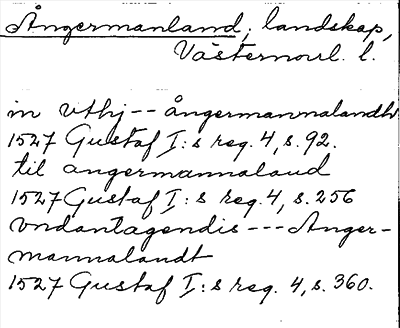 Ångermanland, landskap,
Västernorrl. l.
in vthj -- ångermannalandh
1527 Gustaf I:s reg. 4, s. 92.
til angermannaland
1527 Gustaf I:s reg. 4, s. 256
vndantagendis --- Anger-
mannalandt
1527 Gustaf I:s reg. 4, s. 360.